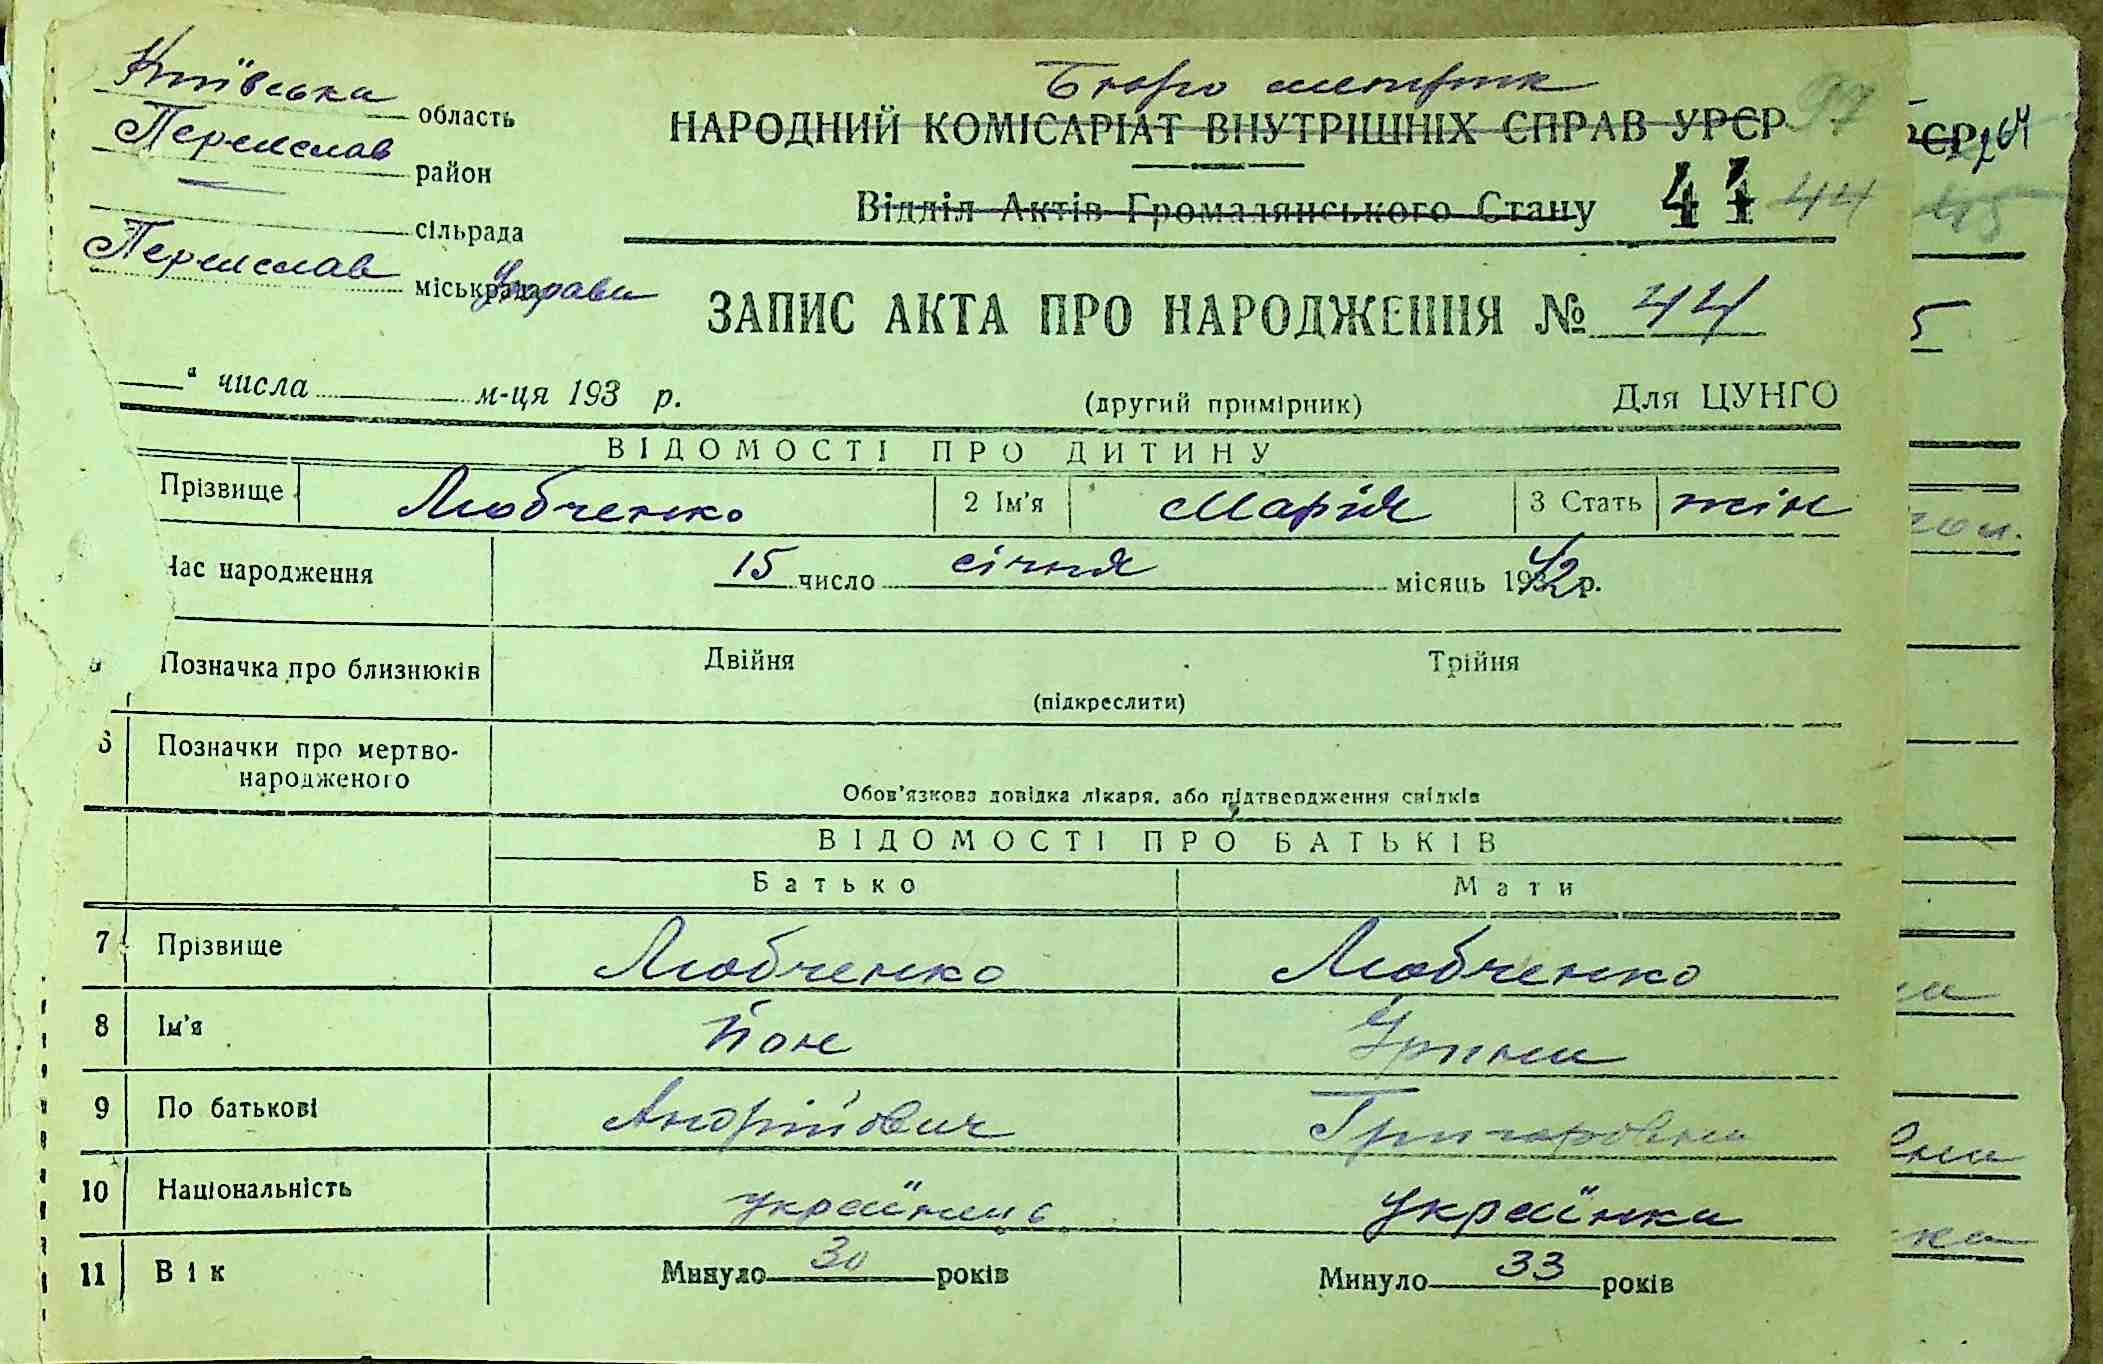 Київська область
Бюро метрик
Переяслав район
НАРОДНИЙ КОМІСАРІАТ ВНУТРІШНІХ СПРАВ УРСР 97
Відділ Актів Громадянського Стану 44 44
сільрада
Переяслав міськрада Управи
ЗАПИС АКТА ПРО НАРОДЖЕННЯ № 44
" числа м-ця 193 р.
(другий примірник) Для ЦУНГО
ВІДОМОСТІ ПРО ДИТИНУ
Прізвище Любченко 2 Ім'я Марія 3 Стать жін
Час народження 15 число січня місяць 1942 р.
5 Позначка про близнюків Двійня Трійня
(підкреслити)
6 Позначки про мертво-
народженого
Обов'язкова довідка лікаря, або підтвердження свідків
ВІДОМОСТІ ПРО БАТЬКІВ
Батько Мати
7 Прізвище Любченко Любченко
8 Ім'я Йон Ірина
9 По батькові Андрійович Григоровна
10 Національність українець українка
11 Вік Минуло 30 років Минуло 33 років